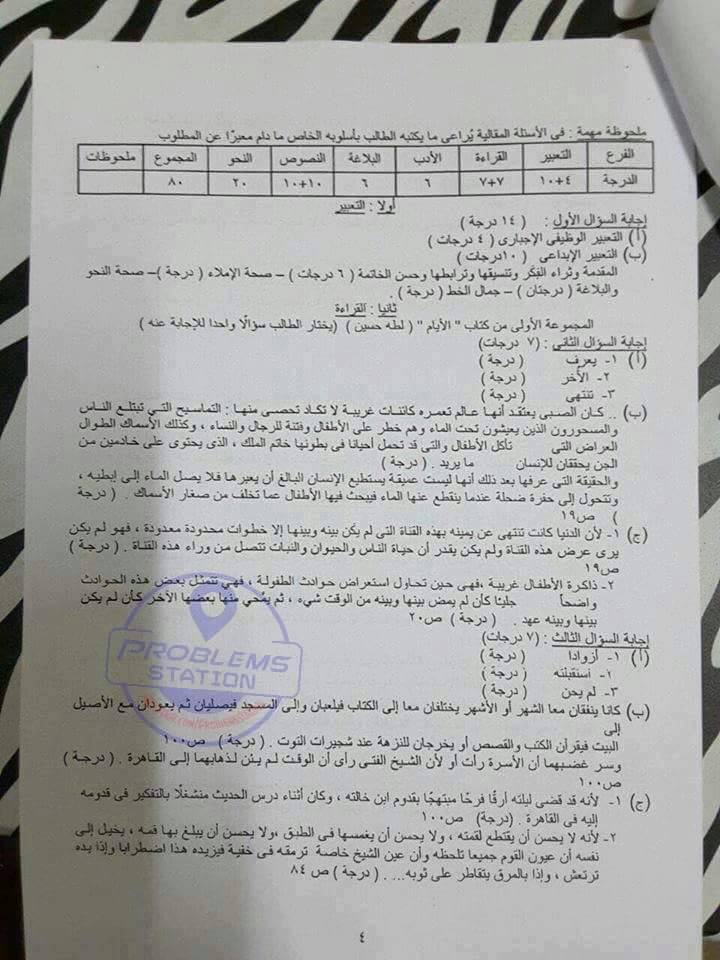 ملحوظة مهمة : فى الأسئلة المقالية يُراعى ما يكتبه الطالب بأسلوبه الخاص ما دام معبرًا عن المطلوب
الفرع التعبير القراءة الأدب البلاغة النصوص النحو المجموع ملحوظات
الدرجة ٤+١٠ ٧+٧ ٦ ٦ ١٠+١٠ ٢٠ ٨٠
أولا : التعبير
إجابة السؤال الأول : ( ١٤ درجة )
(أ) التعبير الوظيفى الإجبارى ( ٤ درجات )
(ب) التعبير الإبداعى ( ١٠درجات )
المقدمة وثراء الفِكَر وتنسيقها وترابطها وحسن الخاتمة ( ٦ درجات ) – صحة الإملاء ( درجة )– صحة النحو
والبلاغة ( درجتان ) – جمال الخط ( درجة ) .
ثانيا : القراءة
المجموعة الأولى من كتاب " الأيام " ( لطه حسين ) (يختار الطالب سؤالًا واحدا للإجابة عنه )
إجابة السؤال الثانى : (٧ درجات)
(أ) ١- يعرف ( درجة )
٢- الأُخر ( درجة )
٣- تنتهى ( درجة )
(ب) .. كان الصبى يعتقد أنها عالم تعمره كائنات غريبة لا تكاد تحصى منها : التماسيح التى تبتلع الناس
والمسحورون الذين يعيشون تحت الماء وهم خطر على الأطفال وفتنة للرجال والنساء ، وكذلك الأسماك الطوال
العراض التى تأكل الأطفال والتى قد تحمل أحيانا فى بطونها خاتم الملك ، الذى يحتوى على خادمين من
الجن يحققان للإنسان ما يريد . ( درجة )
والحقيقة التى عرفها بعد ذلك أنها ليست عميقة يستطيع الإنسان البالغ أن يعبرها فلا يصل الماء إلى إبطيه ،
وتتحول إلى حفرة ضحلة عندما ينقطع عنها الماء فيبحث فيها الأطفال عما تخلف من صغار الأسماك . ( درجة
) ص١٩
(ج) ١- لأن الدنيا كانت تنتهى عن يمينه بهذه القناة التى لم يكن بينه وبينها إلا خطوات محدودة معدودة ، فهو لم يكن
يرى عرض هذه القناة ولم يكن يقدر أن حياة الناس والحيوان والنبات تتصل من وراء هذه القناة . ( درجة )
ص١٩
٢- ذاكرة الأطفال غريبة ،فهى حين تحاول استعراض حوادث الطفولة ، فهى تتمثل بعض هذه الحوادث
واضحاً جليًا كأن لم يمض بينها وبينه من الوقت شيء ، ثم يمَّحي منها بعضها الآخر كأن لم يكن
بينها وبينه عهد . ( درجة ) ص٢٠
PROBLEMS
STATION
إجابة السؤال الثالث : (٧ درجات)
(أ) ١- أزوادا ( درجة )
٢- استقبلته ( درجة )
٣- لم يحن ( درجة )
(ب) كانا ينفقان معا الشهر أو الأشهر يختلفان معا إلى الكتاب فيلعبان وإلى المسجد فيصليان ثم يعودان مع الأصيل
إلى
البيت فيقرأن الكتب والقصص أو يخرجان للنزهة عند شجيرات التوت . ( درجة ) ص١٠٠
وسر غضبهما أن الأسرة رأت أو لأن الشيخ الفتى رأى أن الوقت لم يئن لذهابهما إلى القاهرة . ( درجة )
ص١٠٠
(ج) ١- لأنه قد قضى ليلته أرقًا فرحًا مبتهجًا بقدوم ابن خالته ، وكان أثناء درس الحديث منشغلًا بالتفكير فى قدومه
إليه فى القاهرة . (درجة) ص١٠٠
٢- لأنه لا يحسن أن يقتطع لقمته ، ولا يحسن أن يغمسها فى الطبق ،ولا يحسن أن يبلغ بها فمه ، يخيل إلى
نفسه أن عيون القوم جميعا تلحظه وأن عين الشيخ خاصة ترمقه فى خفية فيزيده هذا اضطرابا وإذا يده
ترتعش ، وإذا بالمرق يتقاطر على ثوبه.... ( درجة ) ص ٨٤
٤